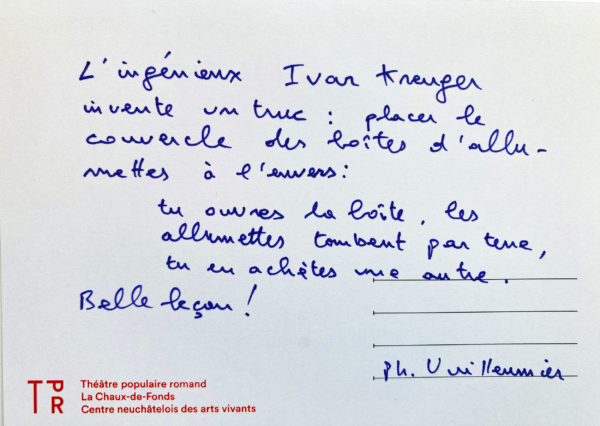 L'ingénieux Ivar Kreuger
invente un truc : placer le
couvercle des boîtes d'allu-
mettes à l'envers :
tu ouvres la boîte, les
allumettes tombent par terre,
tu en achètes une autre.
Belle leçon !
Ph. Vuilleumier
TPR
Théâtre populaire romand
La Chaux-de-Fonds
Centre neuchâtelois des arts vivants